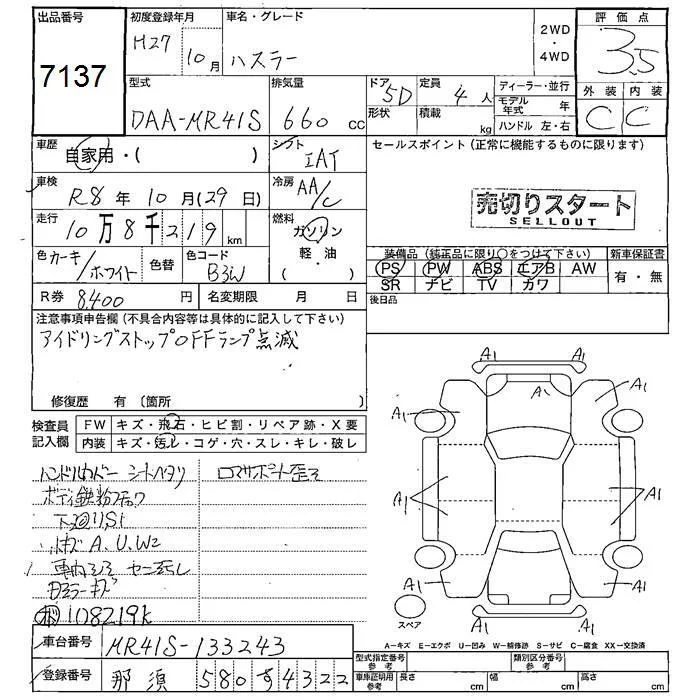 出品番号
7137
初度登録年月
H27 10月
車名・グレード
ハスラー
2WD
・
4WD
評価点
3.5
型式
DAA-MR41S
排気量
660 cc
ドア
5D
形状
定員
4 人
積載
kg
ディーラー・並行
モデル年式 年
ハンドル 左・右
外装 内装
C C
車歴
自家用・( )
シフト
IAT
セールスポイント (正常に機能するものに限ります)
売切りスタート
SELLOUT
車検
R8 年 10 月(29 日)
冷房
AA/C
走行
10万8千219 km
燃料
ガソリン
軽・油
( )
色 カーキ/ホワイト
色替
色コード
B3W
装備品 (純正品に限り○をつけて下さい)
PS PW ABS エアB AW
SR ナビ TV カワ
新車保証書
有・無
R券 8,400 円
名変期限 月 日
後日品
注意事項申告欄 (不具合内容等は具体的に記入して下さい)
アイドリングストップOFFランプ点滅
修復歴 有 (箇所 )
検査員記入欄
FW キズ・飛石・ヒビ割・リペア跡・X要
内装 キズ・汚レ・コゲ・穴・スレ・キレ・破レ
シートヘタリ
ボディ鉄粉
下廻りS1
A、U、W2
108219K
A1
A1
A1
A1
A1
A1
A1
A1
A1
A1
A1
スペア
A-キズ E-エクボ U-凹み W-補修跡 S-サビ C-腐食 XX-交換済
車台番号
MR41S-133243
登録番号
那須 580 す 4322
型式指定番号 参考
類別区分番号 参考
車庫証明用 参考
長さ cm
幅 cm
高さ cm